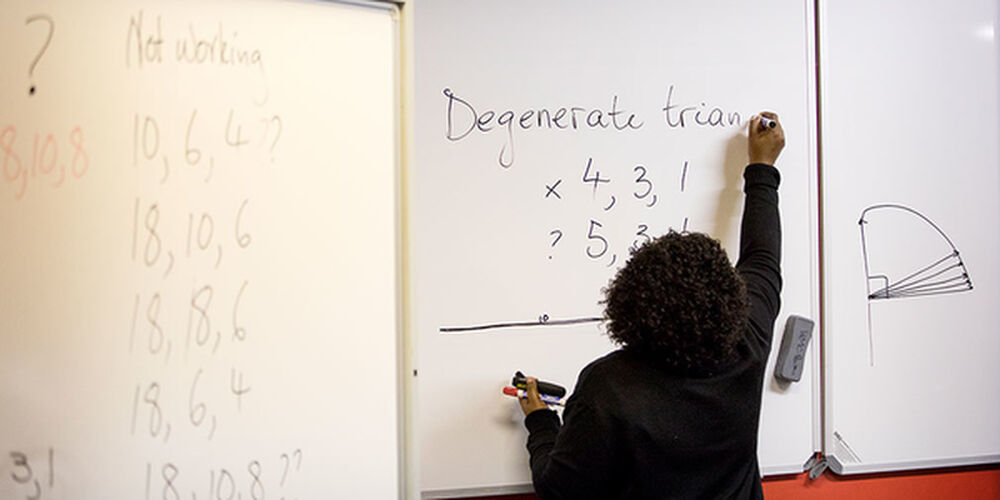 ?
Not working
8,10,8
10, 6, 4 ??
18, 10, 6
18, 18, 6
18, 6, 4
3,1
18, 10, 8 ??
Degenerate trian
x 4, 3, 1
? 5, 3,